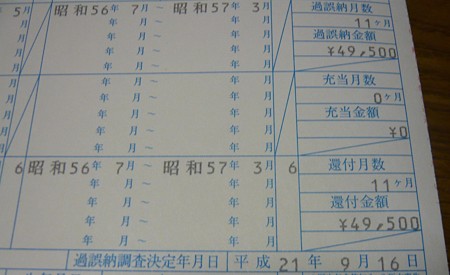 5月 昭和56年 7月 〜 昭和57年 3月 過誤納月数
月 年 月 〜 年 月 11ヶ月
月 年 月 〜 年 月 過誤納金額
月 年 月 〜 年 月 ¥49,500
月 年 月 〜 年 月 充当月数
月 年 月 〜 年 月 0ヶ月
月 年 月 〜 年 月 充当金額
月 年 月 〜 年 月 ¥0
6 昭和56年 7月 〜 昭和57年 3月 6 還付月数
年 月 〜 年 月 11ヶ月
年 月 〜 年 月 還付金額
年 月 〜 年 月 ¥49,500
過誤納調査決定年月日 平成 21年 9月 16日